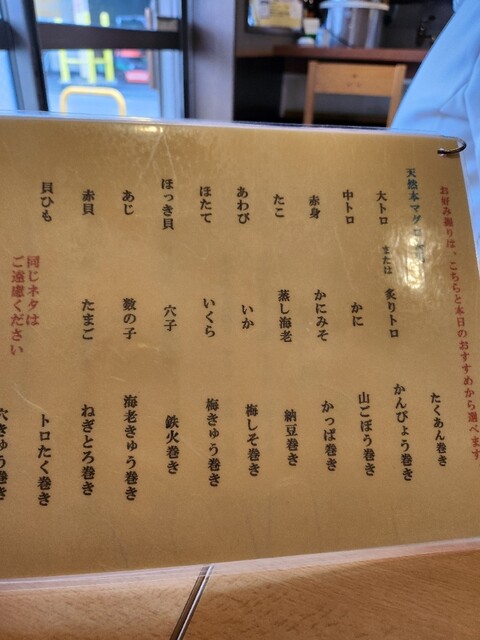 お好み握りは、こちらと本日のおすすめから選べます
天然本マグロ
大トロ または 炙りトロ
中トロ
赤身
たこ
あわび
ほたて
ほっき貝
あじ
赤貝
貝ひも
かに
かにみそ
蒸し海老
いか
いくら
穴子
数の子
たまご
同じネタは
ご遠慮ください
たくあん巻き
かんぴょう巻き
山ごぼう巻き
かっぱ巻き
納豆巻き
梅しそ巻き
梅きゅう巻き
鉄火巻き
海老きゅう巻き
ねぎとろ巻き
トロたく巻き
穴きゅう巻き